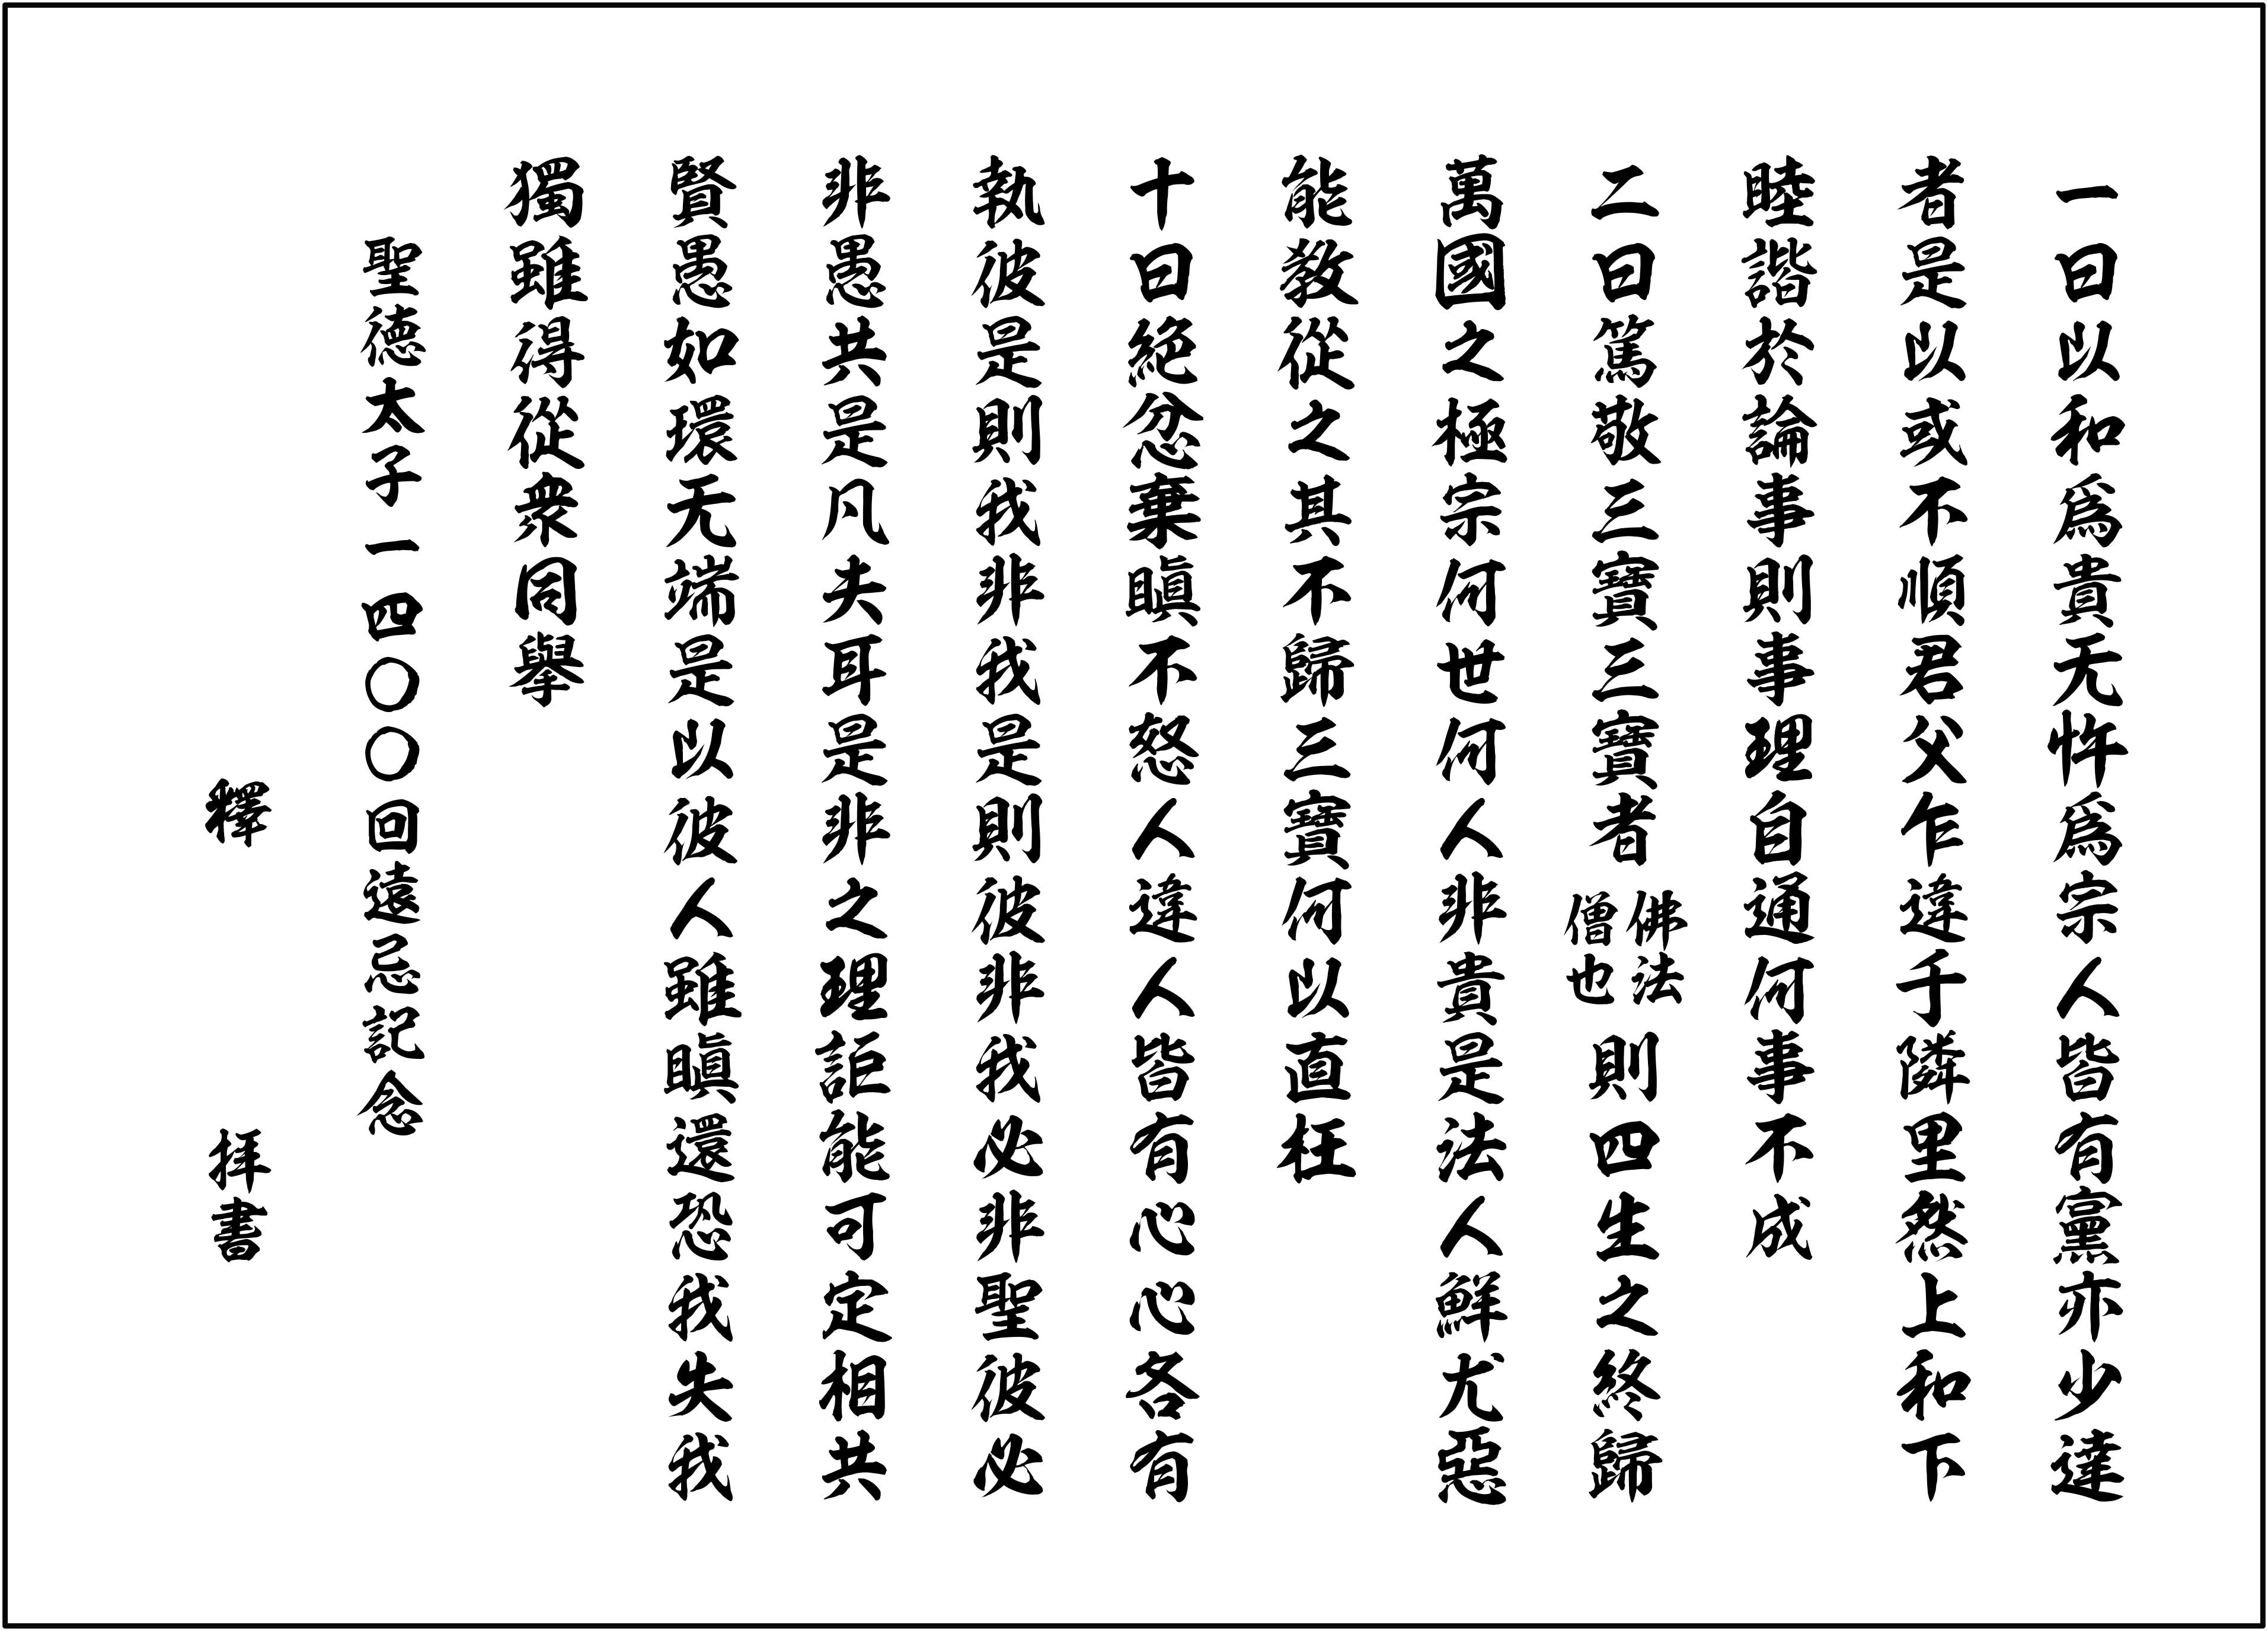 一曰以和爲貴无忤爲宗人皆有黨亦少達
者是以或不順君父乍違于隣里然上和下
睦諧於論事則事理自通何事不成
二曰篤敬三寳三寳者佛法僧也則四生之終歸
萬國之極宗何世何人非貴是法人鮮尤惡
能教從之其不歸三寳何以直枉
十曰絕忿棄瞋不怒人違人皆有心心各有
執彼是則我非我是則彼非我必非聖彼必
非愚共是凡夫耳是非之理詎能可定相共
賢愚如環无端是以彼人雖瞋還恐我失我
獨雖得從衆同擧
聖德太子一四〇〇回遠忌記念
釋 拝書